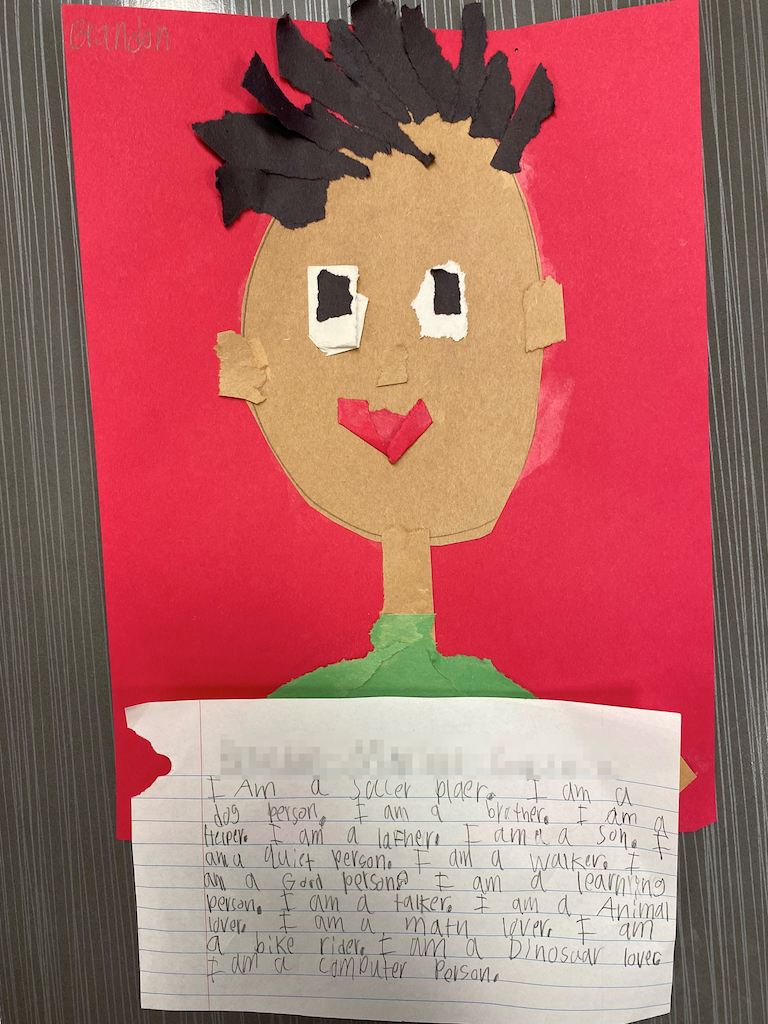 Brandon
I Am a Soccer plaer. I am a
dog person. I am a brother. I am a
Helper. I am a lather. I am a a son. I
am a quiet person. I am a walker. I
am a Good person. I am a learning
person. I am a talker. I am a Animal
lover. I am a math lover. I am
a bike rider. I am a Dinosuar lover
I am a computer Person.